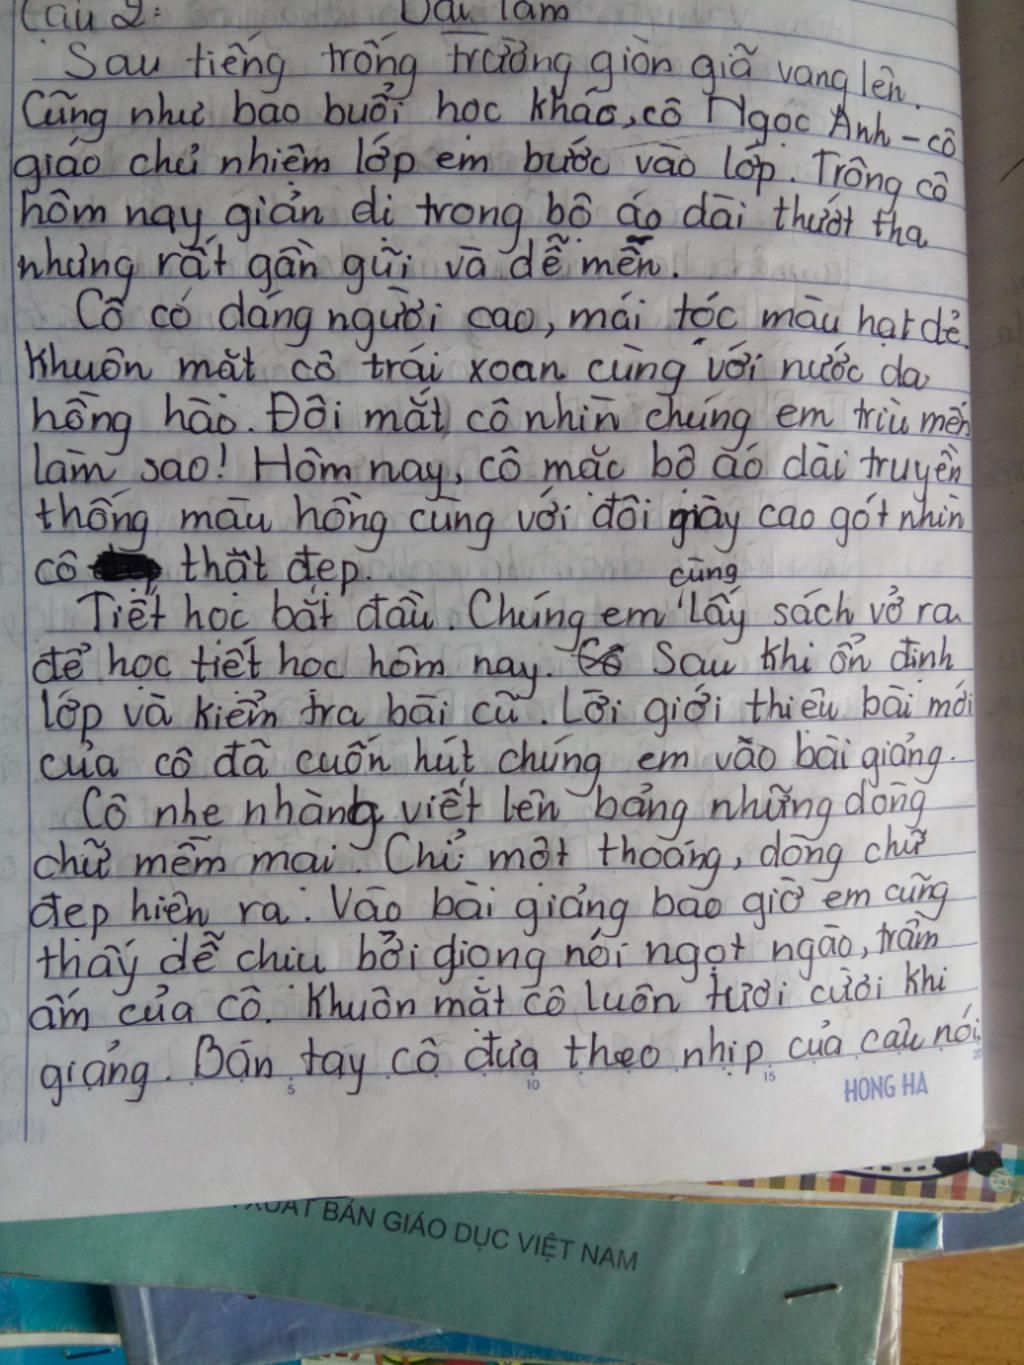 Câu 2: Bài làm
Sau tiếng trống trường giòn giã vang lên.
Cũng như bao buổi học khác, cô Ngọc Anh - cô
giáo chủ nhiệm lớp em bước vào lớp. Trông cô
hôm nay giản dị trong bộ áo dài thướt tha
nhưng rất gần gũi và dễ mến.
Cô có dáng người cao, mái tóc màu hạt dẻ.
Khuôn mặt cô trái xoan cùng với nước da
hồng hào. Đôi mắt cô nhìn chúng em trìu mến
làm sao! Hôm nay, cô mặc bộ áo dài truyền
thống màu hồng cùng với đôi giày cao gót nhìn
cô thật đẹp.
cùng
Tiết học bắt đầu. Chúng em lấy sách vở ra
để học tiết học hôm nay. Sau khi ổn định
lớp và kiểm tra bài cũ. Lời giới thiệu bài mới
của cô đã cuốn hút chúng em vào bài giảng.
Cô nhẹ nhàng viết lên bảng những dòng
chữ mềm mại. Chỉ một thoáng, dòng chữ
đẹp hiện ra. Vào bài giảng bao giờ em cũng
thấy dễ chịu bởi giọng nói ngọt ngào, trầm
ấm của cô. Khuôn mặt cô luôn tươi cười khi
giảng. Bàn tay cô đưa theo nhịp của câu nói
5 10 15 20
HONG HA
XUẤT BẢN GIÁO DỤC VIỆT NAM